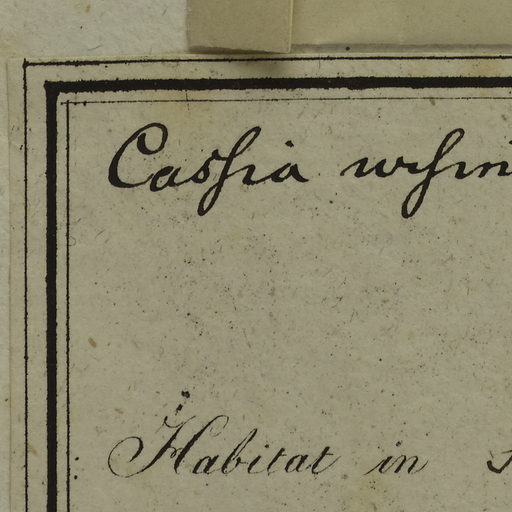 Cassia
Habitat in